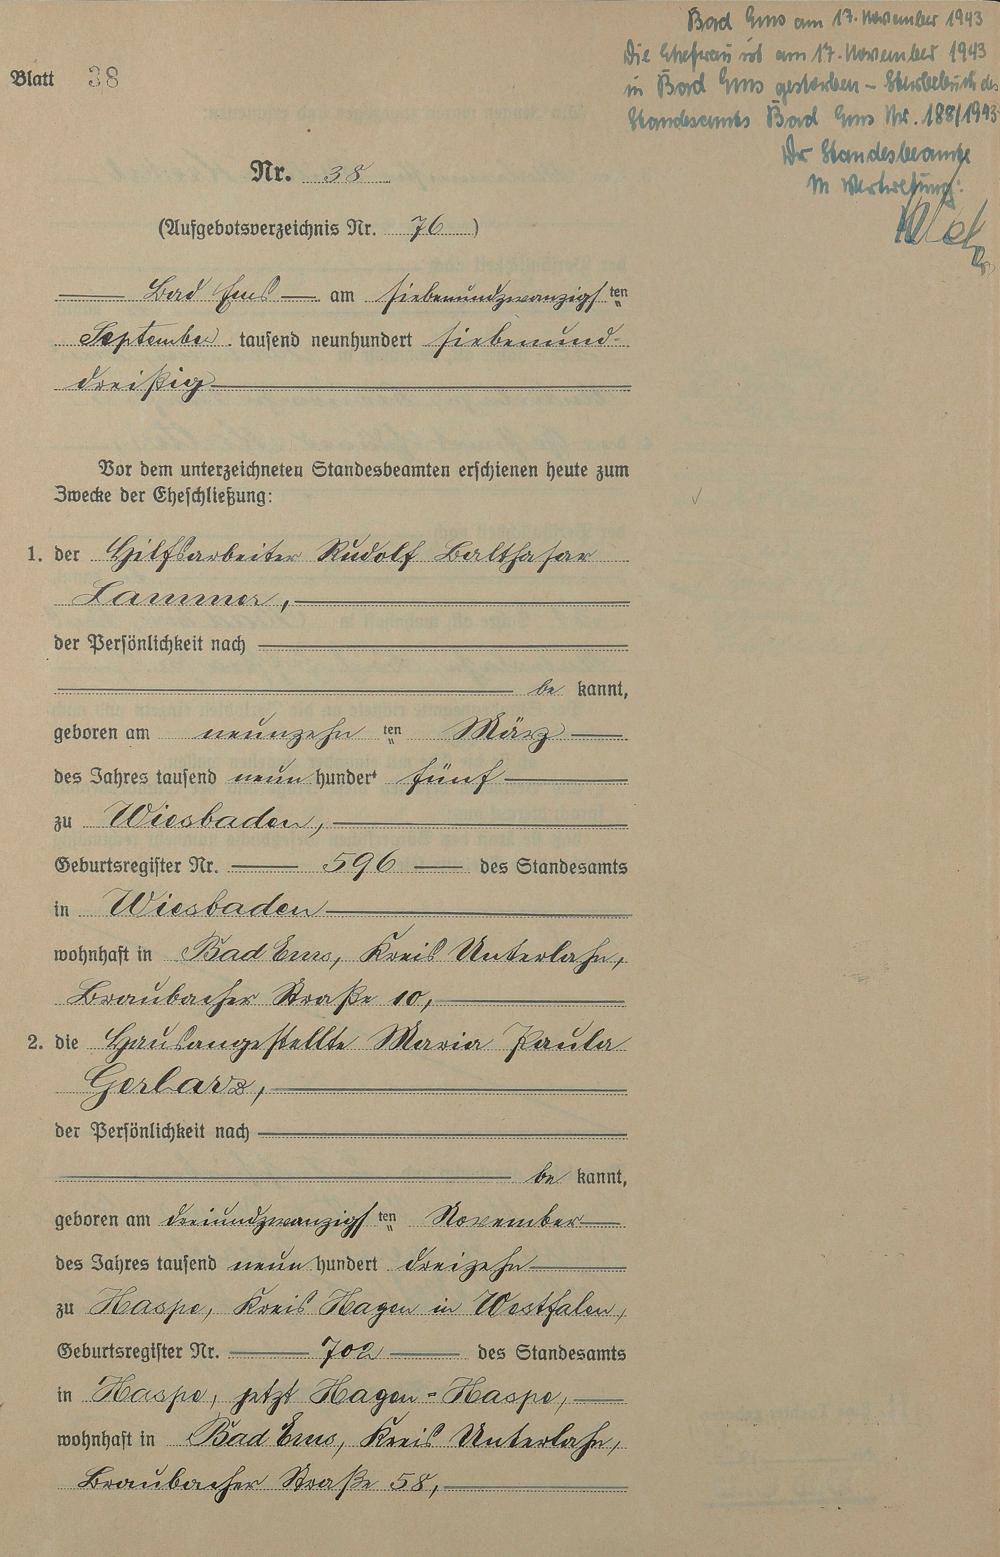 Bad Ems am 17. November 1943
Die Ehefrau ist am 17. November 1943
in Bad Ems gestorben – Sterbebuch des
Standesamts Bad Ems Nr. 188/1943.
Der Standesbeamte
In Vertretung:
Blatt 38
Nr. 38
(Aufgebotsverzeichnis Nr. 76)
Bad Ems am siebenundzwanzigsten
September tausend neunhundert siebenund-
dreißig
Vor dem unterzeichneten Standesbeamten erschienen heute zum
Zwecke der Eheschließung:
1. der Hilfsarbeiter Rudolf Balthasar
Lammer,
der Persönlichkeit nach
be kannt,
geboren am neunzehn ten März
des Jahres tausend neun hundert fünf
zu Wiesbaden,
Geburtsregister Nr. 596 des Standesamts
in Wiesbaden
wohnhaft in Bad Ems, Kreis Unterlahn,
Braubacher Straße 10,
2. die Hausangestellte Maria Paula
Gerharz,
der Persönlichkeit nach
be kannt,
geboren am dreiundzwanzigsten November
des Jahres tausend neun hundert dreizehn
zu Haspe, Kreis Hagen in Westfalen,
Geburtsregister Nr. 702 des Standesamts
in Haspe, jetzt Hagen-Haspe,
wohnhaft in Bad Ems, Kreis Unterlahn,
Braubacher Straße 58,